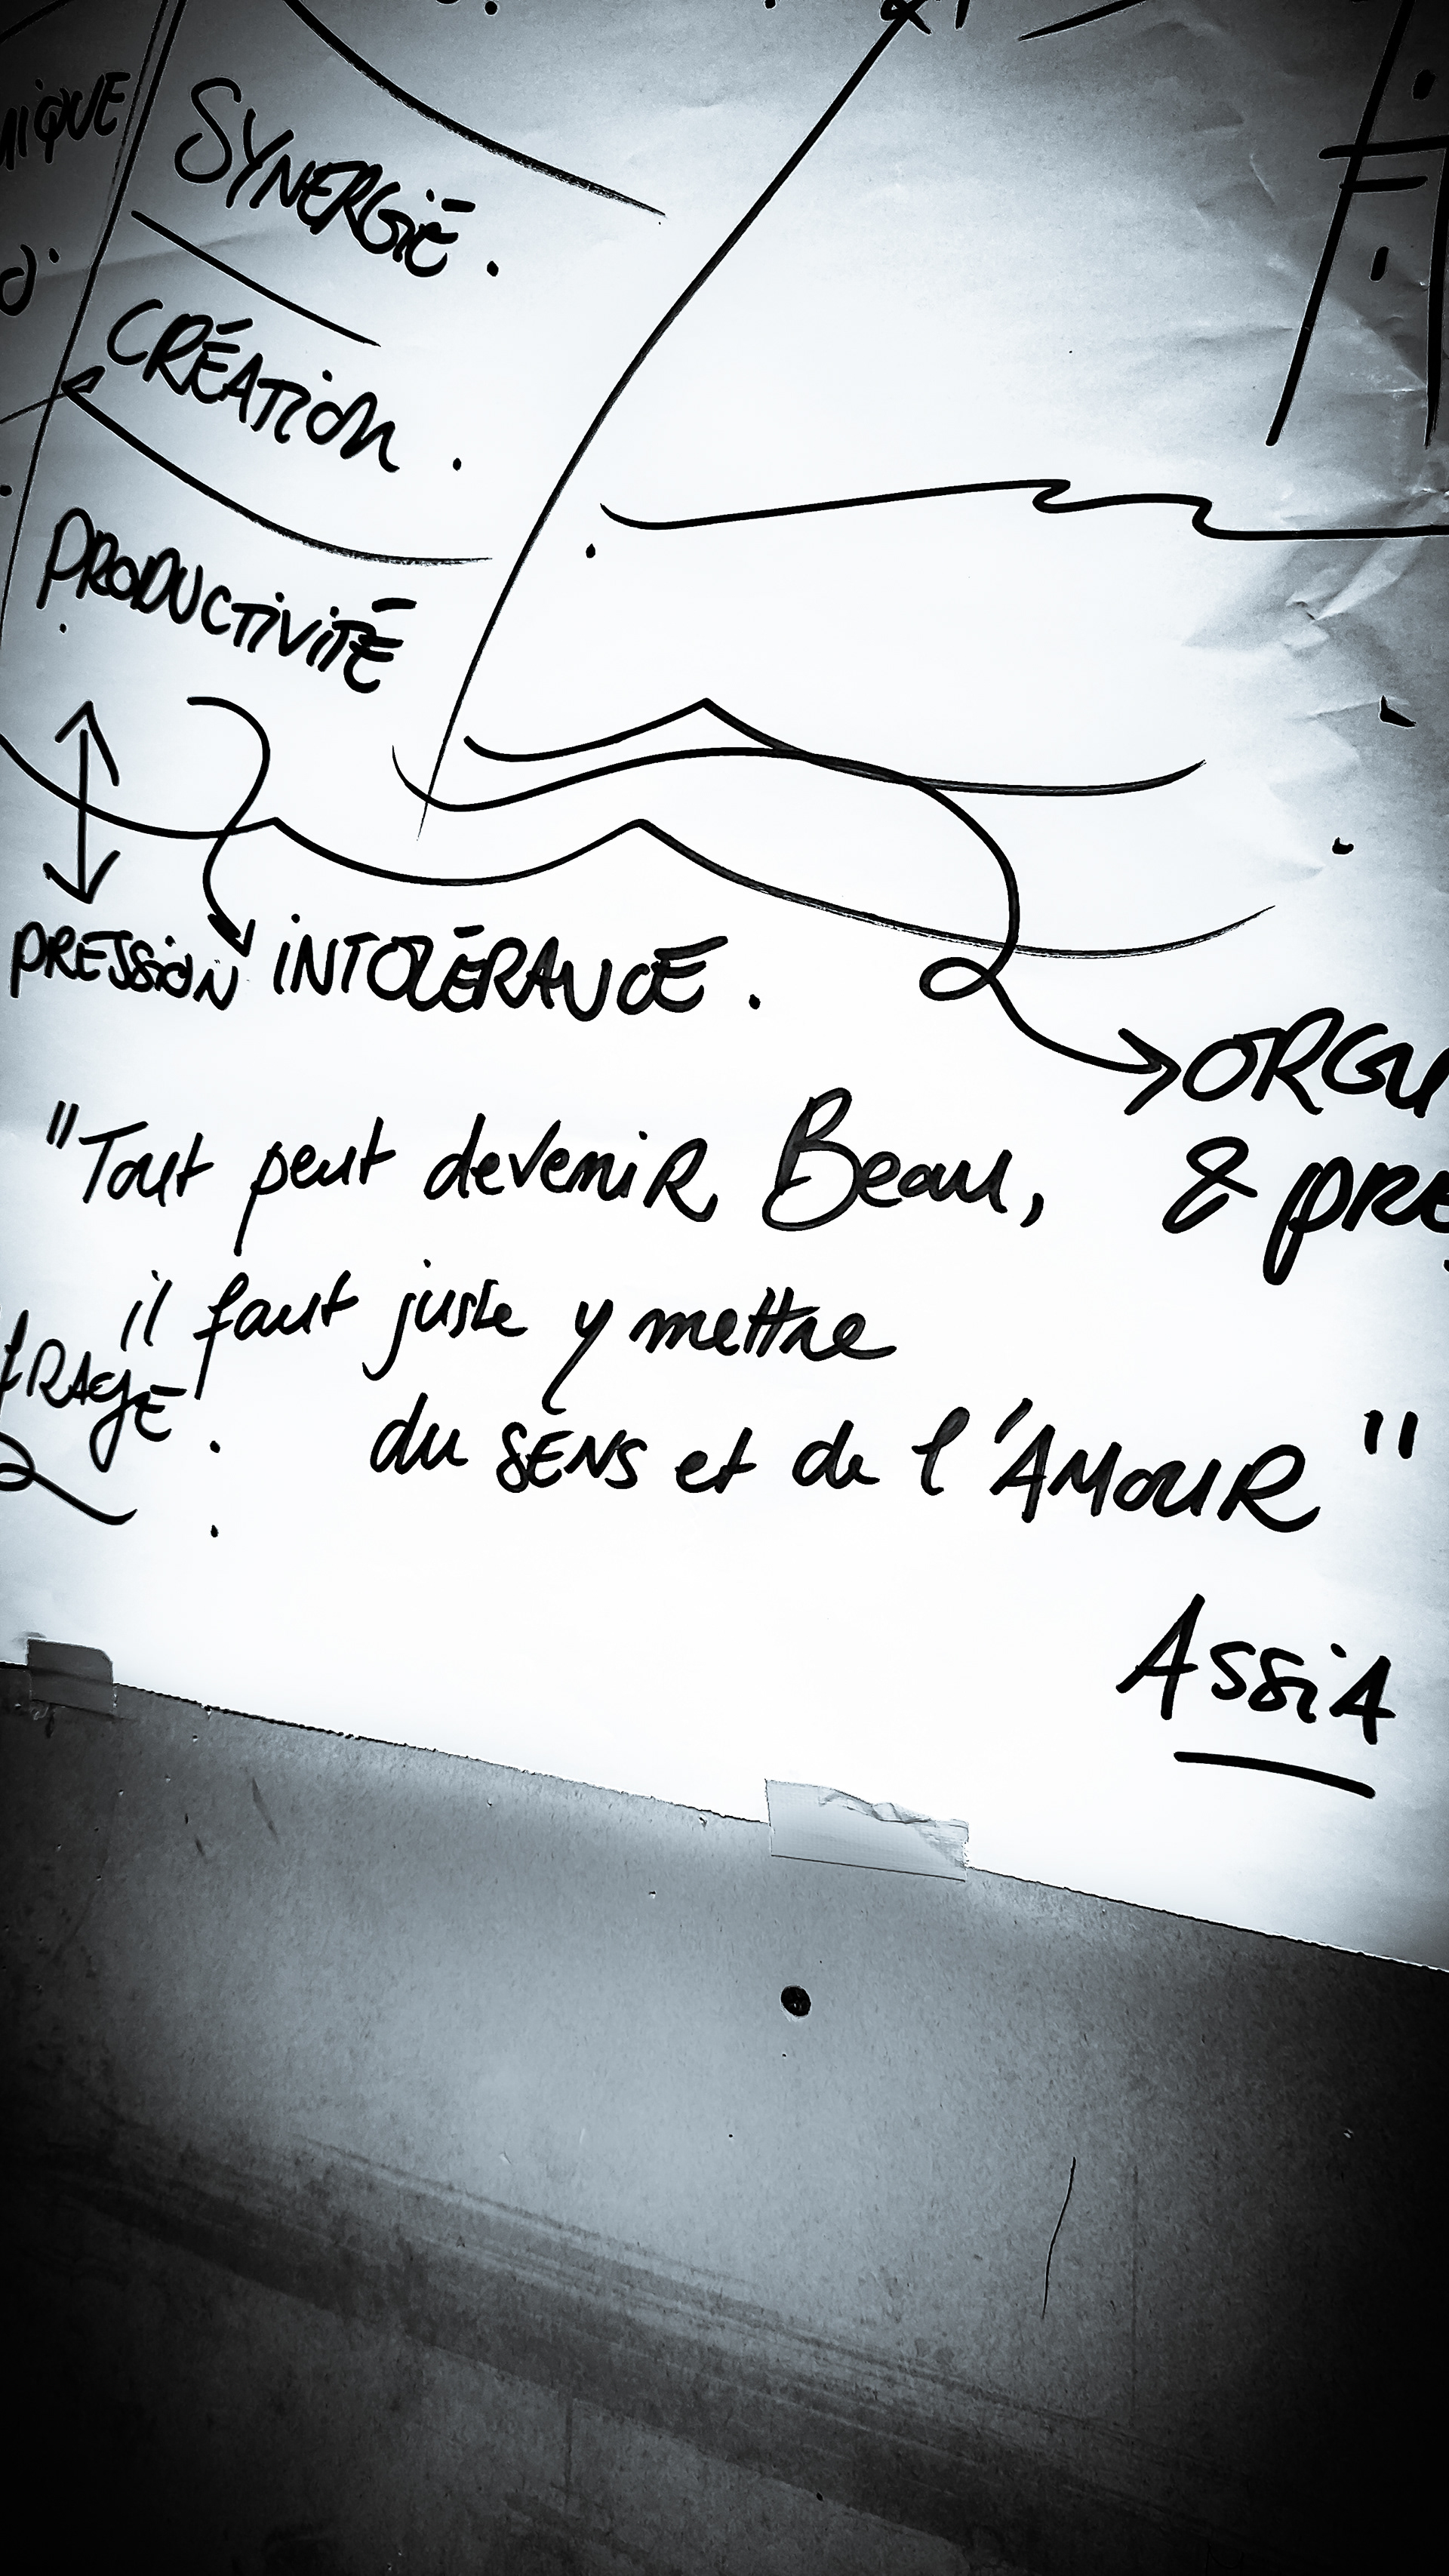 SYNERGIE.
CRÉATION.
PRODUCTIVITÉ
PRESSION INTOLÉRANCE.
ORGU
& PRE
"Tout peut devenir Beau,
il faut juste y mettre
du SENS et de l'AMOUR"
ASSIA